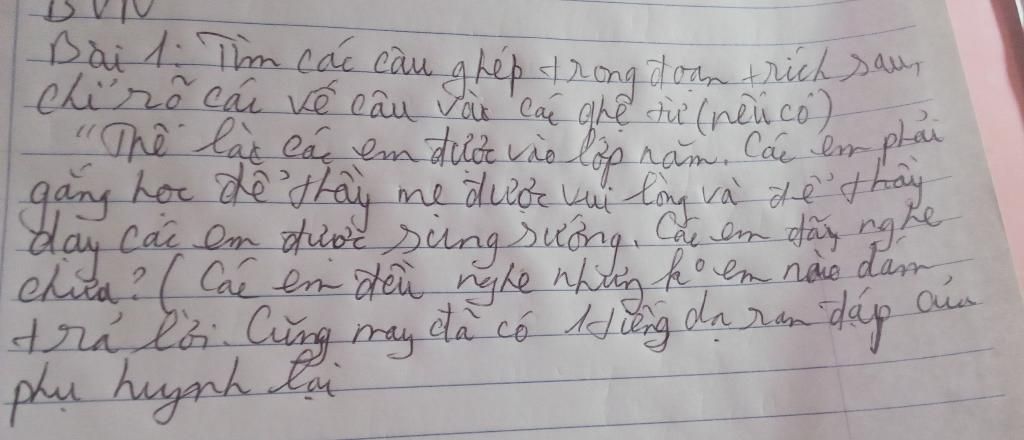 BVN
Bài 1: Tìm các câu ghép trong đoạn trích sau,
chỉ rõ các vế câu và các qhệ từ (nếu có)
"Thế là các em được vào lớp năm. Các em phải
gắng học để thầy mẹ được vui lòng và để thầy
dạy các em được sung sướng. Các em đã nghe
chưa? (Các em đều nghe nhưng ko em nào dám
trả lời. Cũng may đã có tiếng dạ ran đáp của
phụ huynh lại